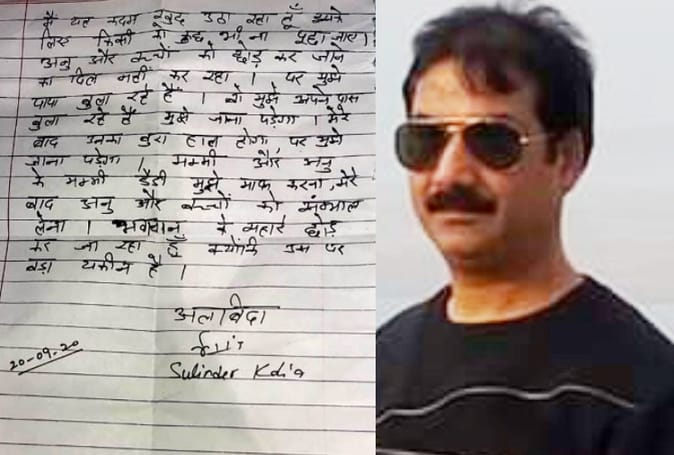 मैं यह कदम खुद उठा रहा हूँ इसके
लिए किसी को कुछ भी ना पूछा जाए।
अनु और बच्चों को छोड़ कर जाने
का दिल नहीं कर रहा। पर मुझे
पापा बुला रहे हैं। वो मुझे अपने पास
बुला रहे हैं मुझे जाना पड़ेगा। मेरे
बाद उनका बुरा हाल होगा, पर मुझे
जाना पड़ेगा। मम्मी और अनु
के मम्मी डैडी मुझे माफ करना, मेरे
बाद अनु और बच्चों को संभाल
लेना। भगवान के सहारे छोड़
कर जा रहा हूँ क्योंकि उस पर
बड़ा यकीन है।
अलविदा
20-09-20